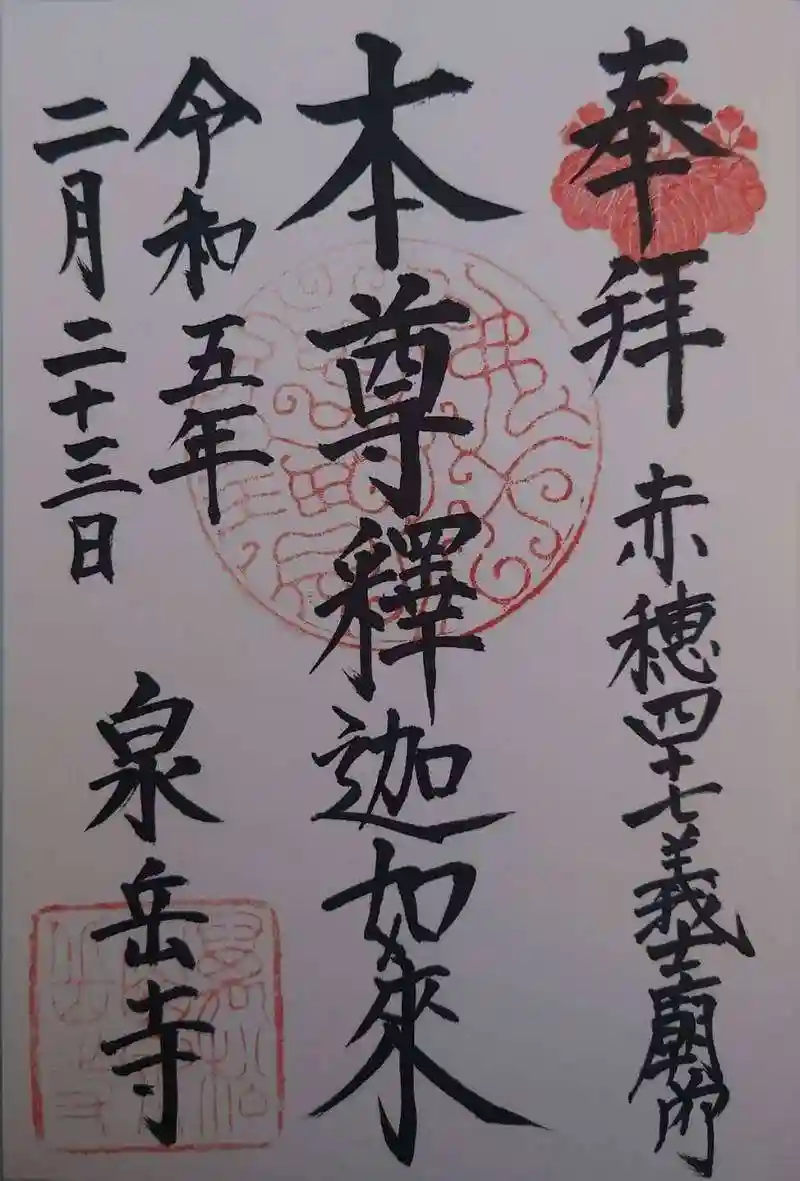 奉拝 赤穂四十七義士廟所
本尊釋迦如來
令和五年
二月二十三日
泉岳寺